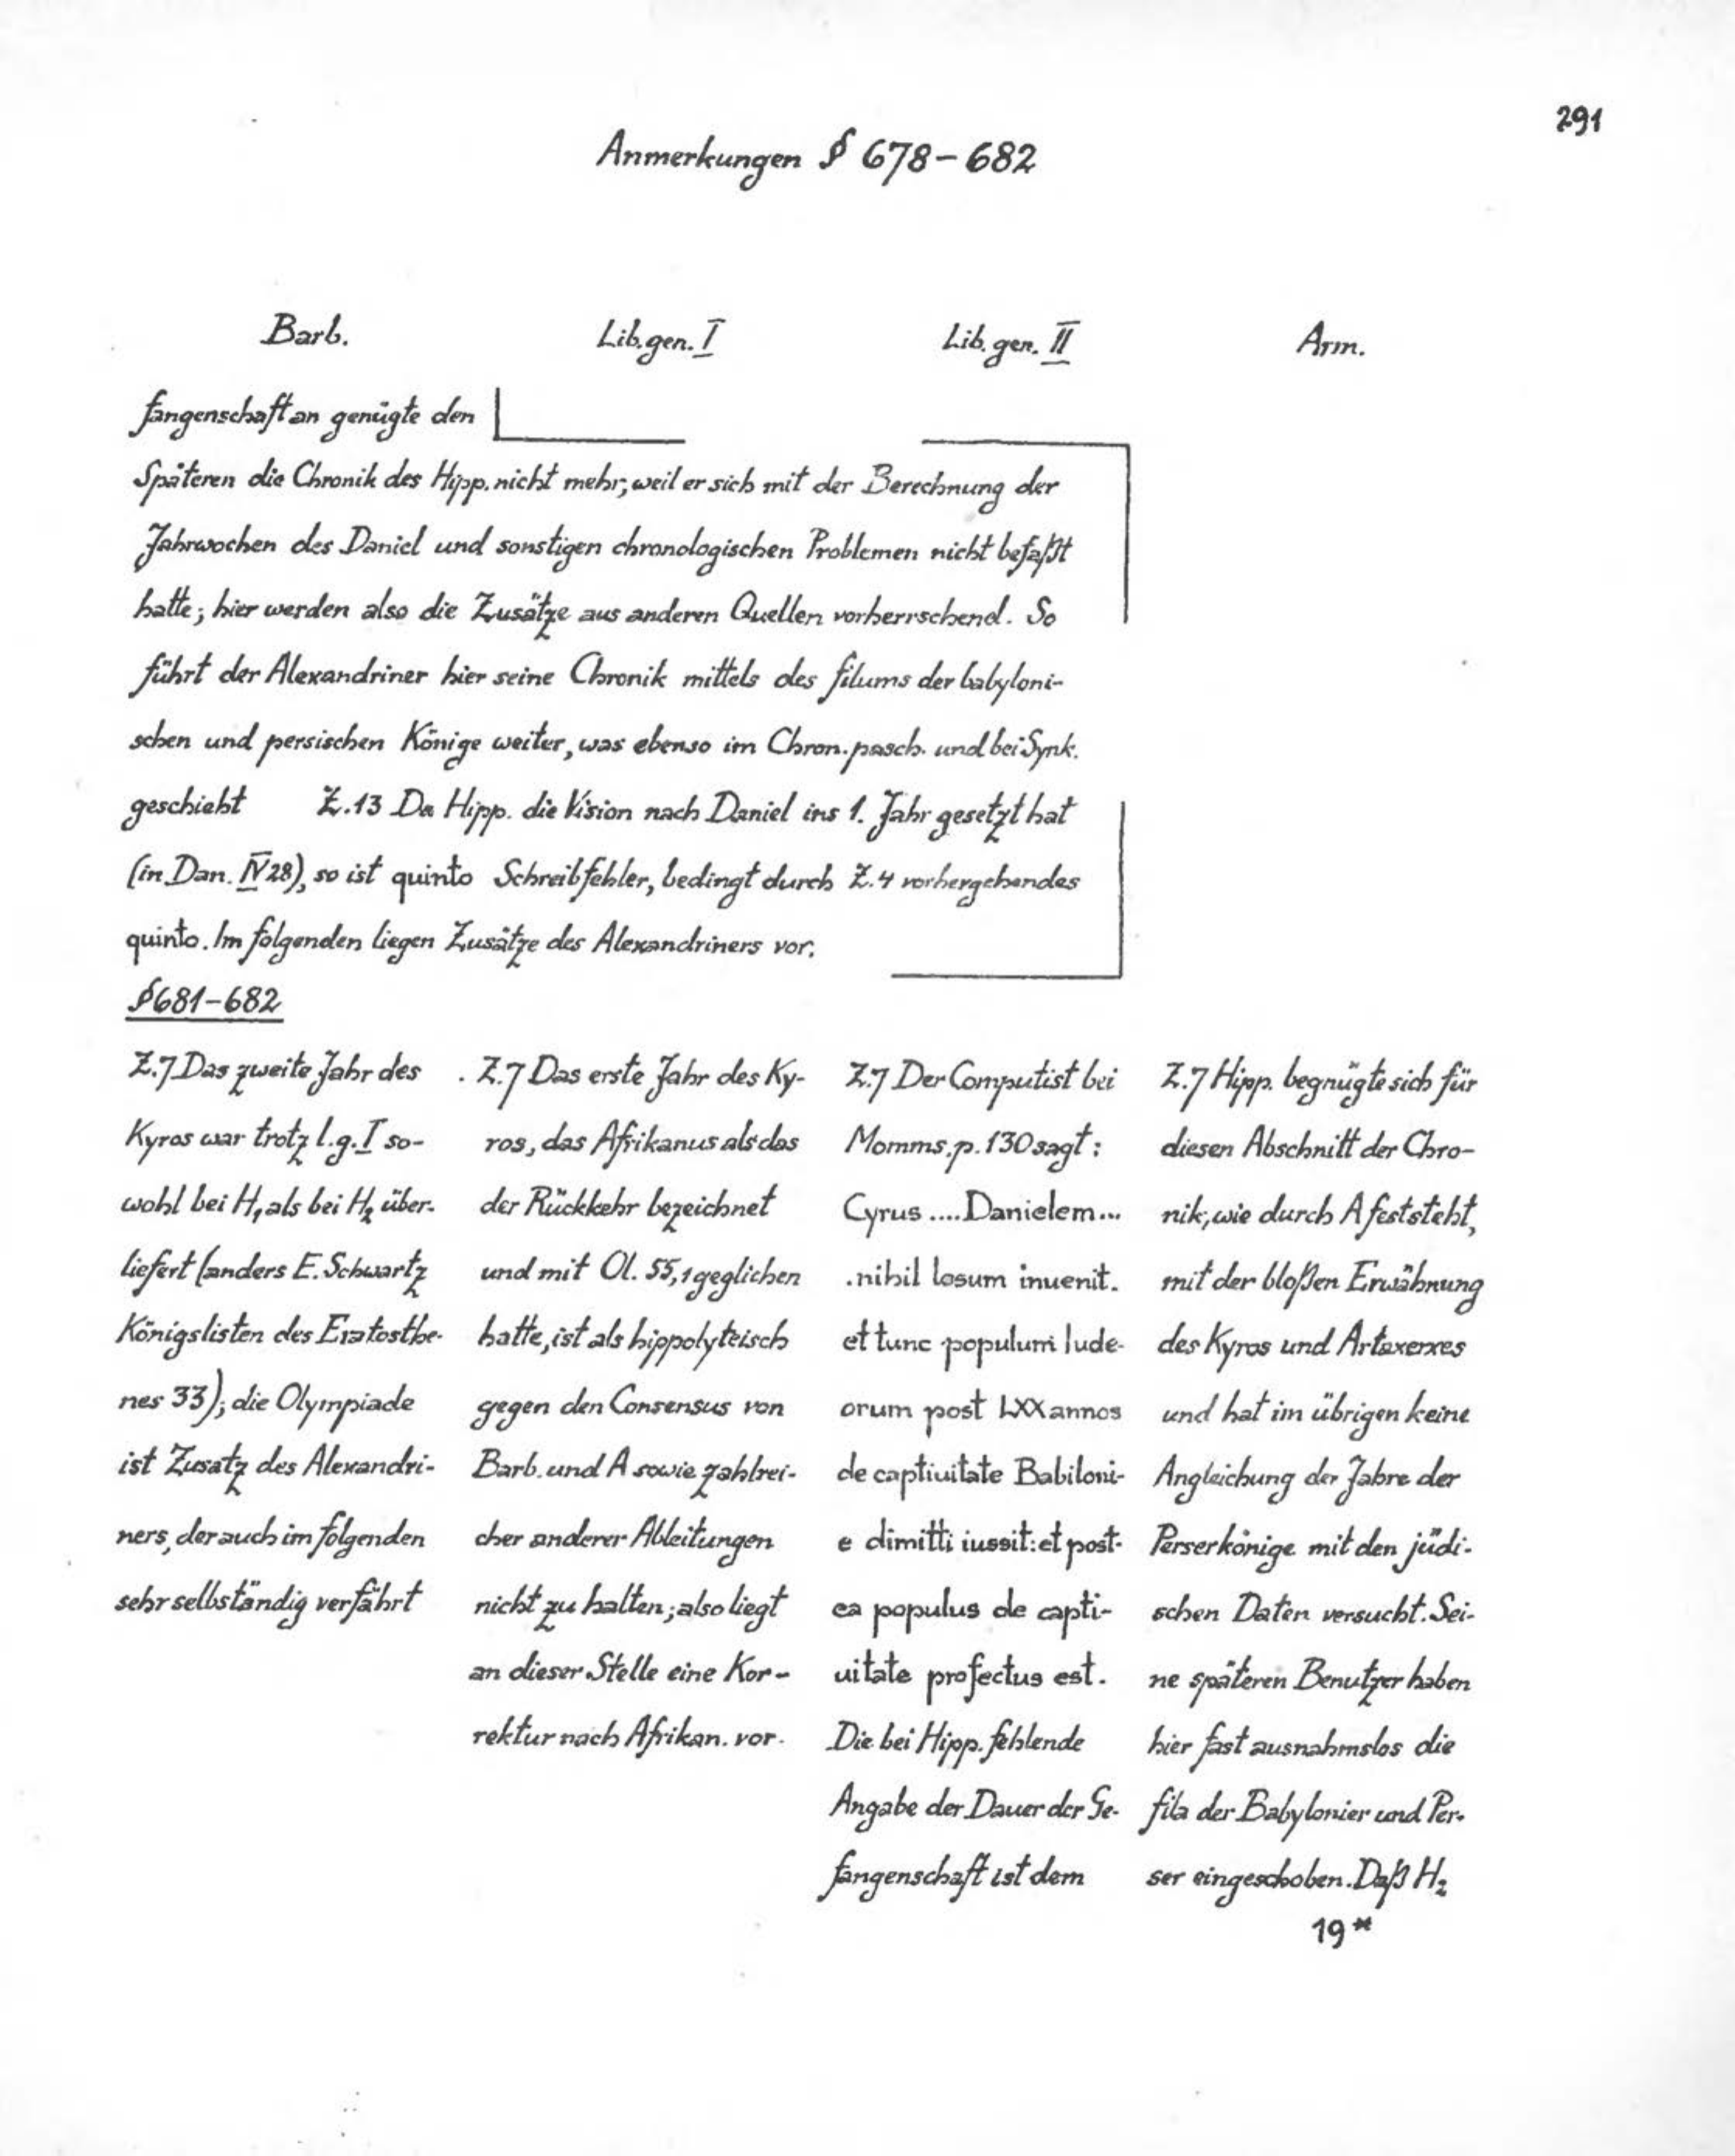 291
Anmerkungen § 678-682
Barb.
Lib. gen. I
Lib. gen. II
Arm.
fangenschaft an genügte den
Späteren die Chronik des Hipp. nicht mehr, weil er sich mit der Berechnung der
Jahrwochen des Daniel und sonstigen chronologischen Problemen nicht befaßt
hatte; hier werden also die Zusätze aus anderen Quellen vorherrschend. So
führt der Alexandriner hier seine Chronik mittels des filums der babyloni-
schen und persischen Könige weiter, was ebenso im Chron. pasch. und bei Synk.
geschieht Z.13 Da Hipp. die Vision nach Daniel ins 1. Jahr gesetzt hat
(in Dan. IV 28), so ist quinto Schreibfehler, bedingt durch Z.4 vorhergehendes
quinto. Im folgenden liegen Zusätze des Alexandriners vor.
§681-682
Z.7 Das zweite Jahr des
Kyros war trotz l.g. I so-
wohl bei H1 als bei H2 über-
liefert (anders E. Schwartz
Königslisten des Eratosthe-
nes 33); die Olympiade
ist Zusatz des Alexandri-
ners, der auch im folgenden
sehr selbständig verfährt
Z.7 Das erste Jahr des Ky-
ros, das Afrikanus als das
der Rückkehr bezeichnet
und mit Ol. 55,1 geglichen
hatte, ist als hippolyteisch
gegen den Consensus von
Barb. und A sowie zahlrei-
cher anderer Ableitungen
nicht zu halten; also liegt
an dieser Stelle eine Kor-
rektur nach Afrikan. vor.
Z.7 Der Computist bei
Momms. p. 130 sagt:
Cyrus .... Danielem...
.nihil lesum inuenit.
et tunc populum Iude-
orum post LXX annos
de captiuitate Babiloni-
e dimitti iussit: et post-
ea populus de capti-
uitate profectus est.
Die bei Hipp. fehlende
Angabe der Dauer der Ge-
fangenschaft ist dem
Z.7 Hipp. begnügte sich für
diesen Abschnitt der Chro-
nik, wie durch A feststeht,
mit der bloßen Erwähnung
des Kyros und Artaxerxes
und hat im übrigen keine
Angleichung der Jahre der
Perserkönige mit den jüdi-
schen Daten versucht. Sei-
ne späteren Benutzer haben
hier fast ausnahmslos die
fila der Babylonier und Per-
ser eingeschoben. Daß H2
19*